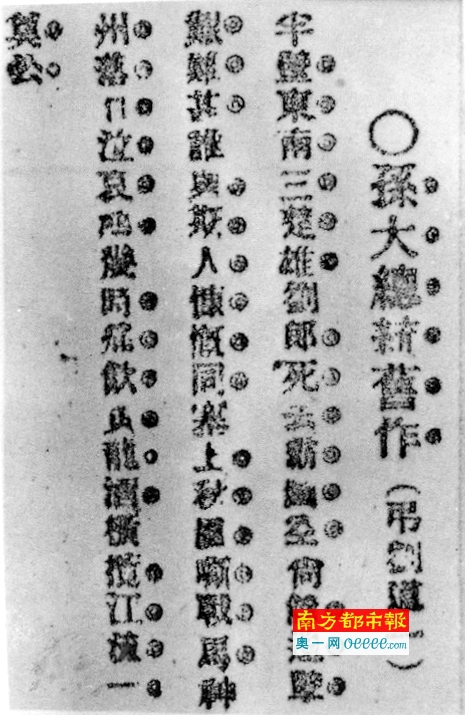 ○孫大總統舊作（吊劉道一）
半壁東南三楚雄劉郎死去霸圖空尚孽
艱難甚誰與斯人慷慨同塞上秋風嘶戰馬神
州落日泣哀鴻幾時痛飲黃龍酒橫攬江流一
奠公
南方都市報
奥一网 oeeee.com